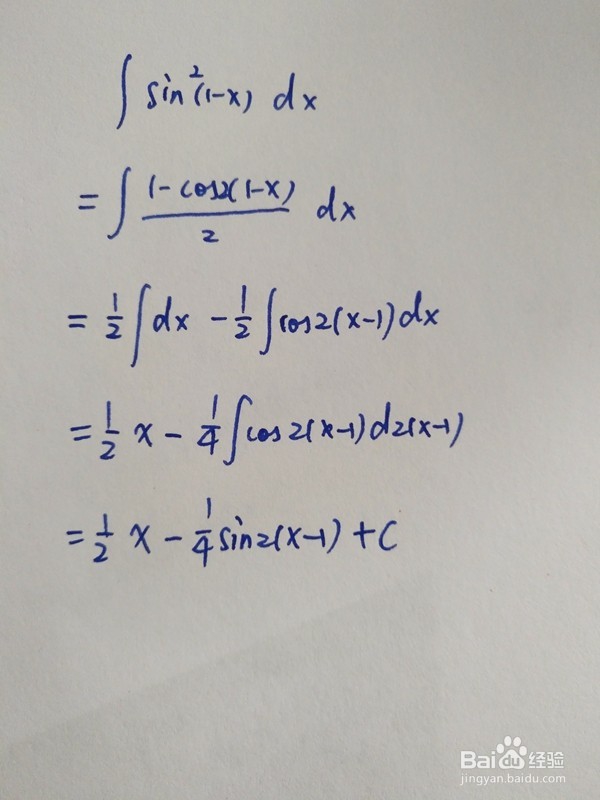 ∫ sin²(1-x) dx
= ∫ (1-cos2(1-x))/2 dx
= 1/2 ∫ dx - 1/2 ∫ cos2(x-1) dx
= 1/2 x - 1/4 ∫ cos2(x-1) d2(x-1)
= 1/2 x - 1/4 sin2(x-1) + C
Baidu 经验
jingyan.baidu.com